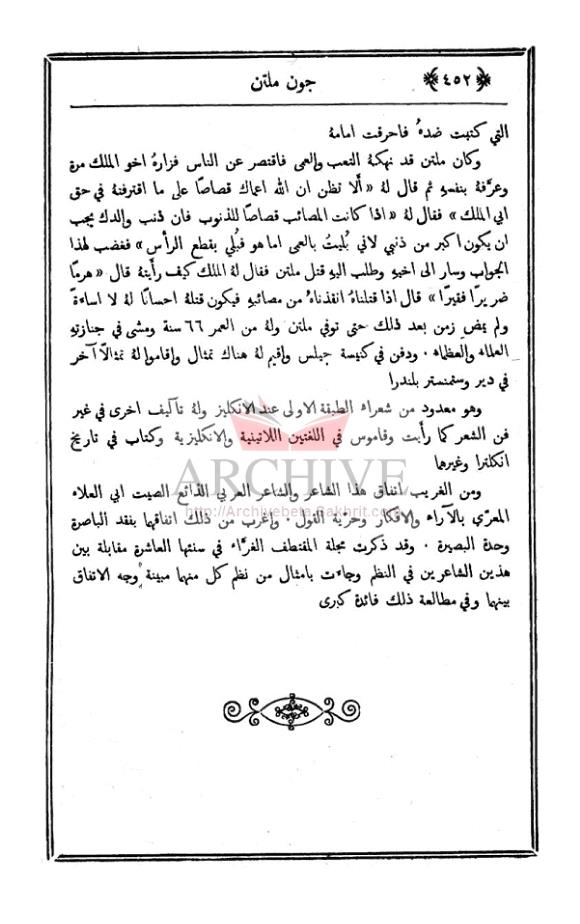 ﴿٤٥٢﴾ جون ملتن
التي كتبت ضدهُ فاحرقت امامهُ
وكان ملتن قد نهكهُ التعب والعمى فاقتصر عن الناس فزارهُ اخو الملك مرة
وعرَّفهُ بنفسهِ ثم قال لهُ «ألا تظن ان الله اعماك قصاصًا على ما اقترفتهُ في حق
ابي الملك» فقال لهُ «اذا كانت المصائب قصاصًا للذنوب فان ذنب والدك يجب
ان يكون اكبر من ذنبي لاني بُليتُ بالعمى اما هو فبُلي بقطع الرأس» فغضب لهذا
الجواب وسار الى اخيهِ وطلب اليهِ قتل ملتن فقال لهُ الملك كيف رأيتهُ قال «هرمًا
ضريرًا فقيرًا» قال اذا قتلناهُ انقذناهُ من مصائبهِ فيكون قتلهُ احسانًا لهُ لا اساءةً
ولم يمضِ زمن بعد ذلك حتى توفي ملتن ولهُ من العمر ٦٦ سنة ومشى في جنازتهِ
العلماء والعظماء ٠ ودفن في كنيسة جيلس واقيم لهُ هناك تمثال واقاموا لهُ تمثالًا آخر
في دير وستمنستر بلندرا
وهو معدود من شعراء الطبقة الاولى عند الانكليز ولهُ تآليف اخرى في غير
فن الشعر كما رأيت وقاموس في اللغتين اللاتينية والانكليزية وكتاب في تاريخ
انكلترا وغيرها
ARCHIVE
ومن الغريب اتفاق هذا الشاعر والشاعر العربي الذائع الصيت ابي العلاء
http://Archivebeta.Sakhrit.com
المعرّي بالآراء والافكار وحرّية القول ٠ واغرب من ذلك اتفاقهما بفقد الباصرة
وحدة البصيرة ٠ وقد ذكرت مجلة المقتطف الغرَّاء في سنتها العاشرة مقابلة بين
هذين الشاعرين في النظم وجاءت بامثال من نظم كل منهما مبينة وجه الاتفاق
بينهما وفي مطالعة ذلك فائدة كبرى